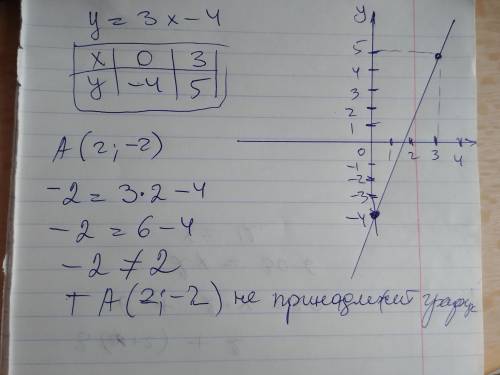 y = 3x - 4
x | 0 | 3
y | -4 | 5
A (2; -2)
-2 = 3·2 - 4
-2 = 6 - 4
-2 ≠ 2
т A (2; -2) не принадлежит график
y
5
4
3
2
1
0 1 2 3 4
-1
-2
-3
-4